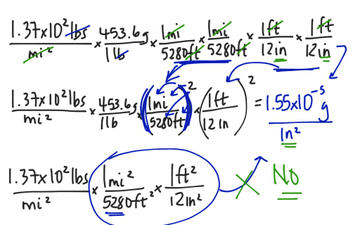 1.37x10² lbs / mi² x 453.6g / 1 lb x 1mi / 5280ft x 1mi / 5280ft x 1ft / 12in x 1ft / 12in
1.37x10² lbs / mi² x 453.6g / 1 lb x (1mi / 5280ft)² x (1ft / 12in)² = 1.55x10⁻⁵ g / in²
1.37x10² lbs / mi² x 1mi² / 5280ft² x 1ft² / 12in² No